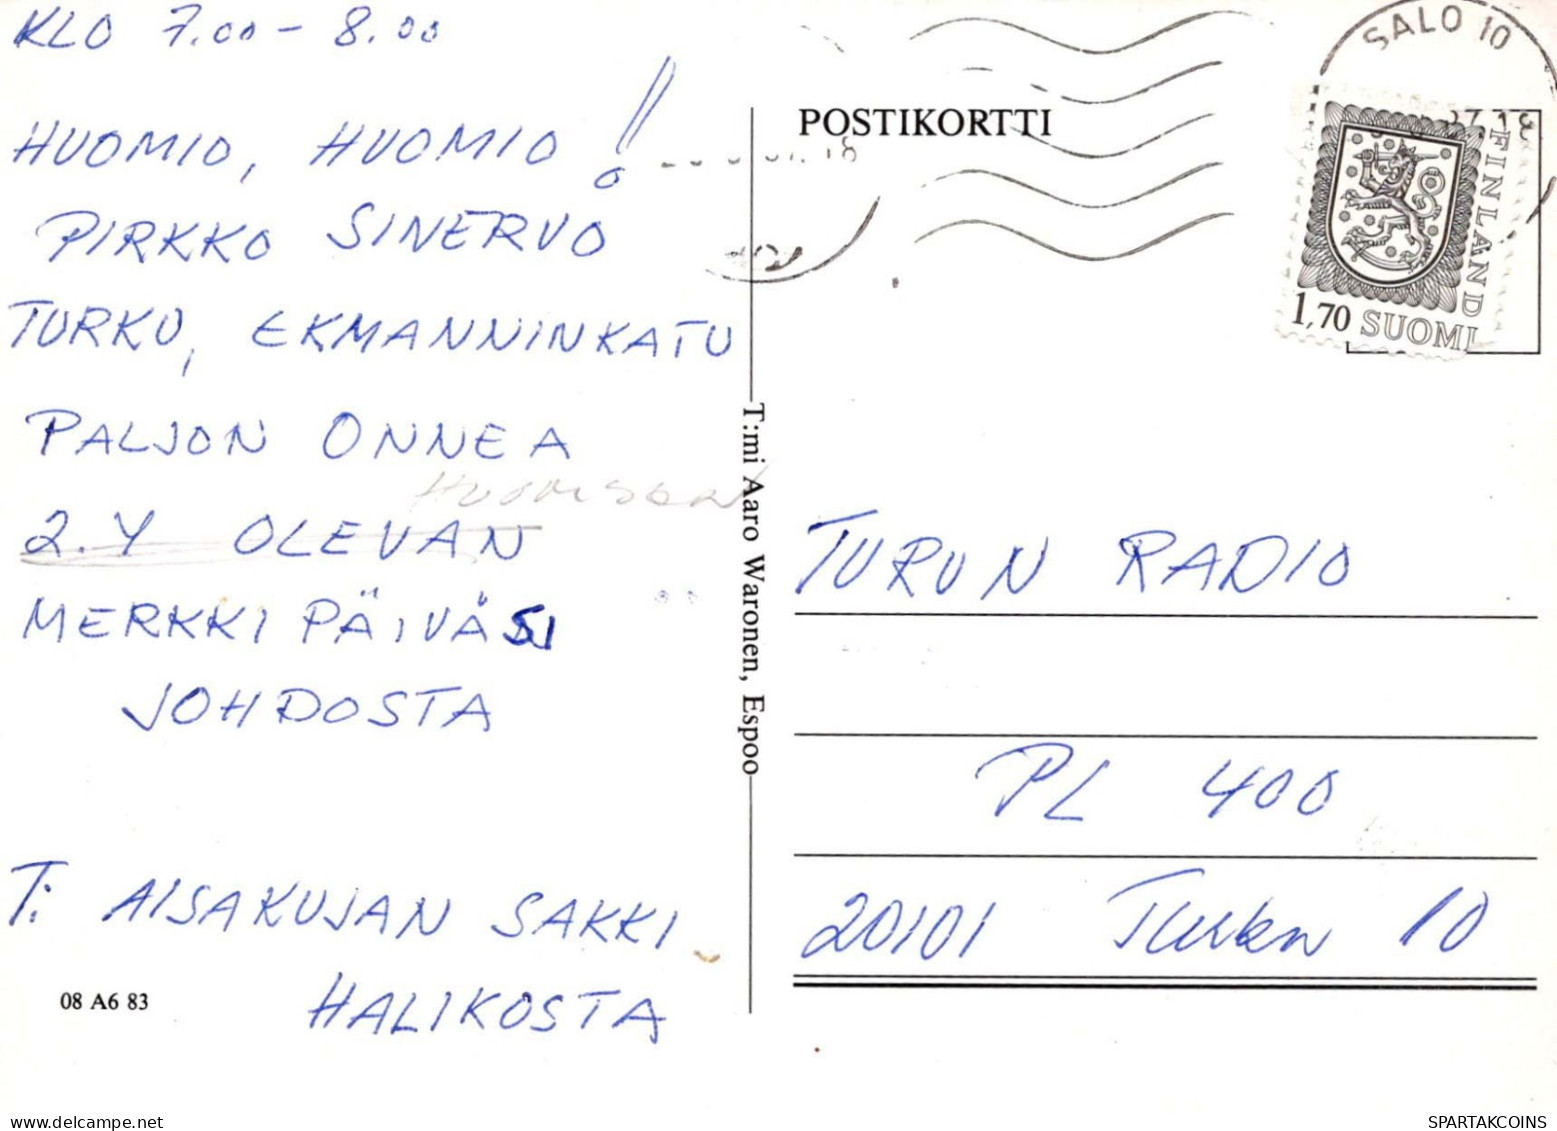 KLO 7.00 - 8.00
HUOMIO, HUOMIO!
PIRKKO SINERVO
TURKU, EKMANNINKATU
PALJON ONNEA
2.4 OLEVAN
MERKKIPÄIVÄSI
JOHDOSTA
T: AISAKUJAN SAKKI
HALIKOSTA
08 A6 83
T:mi Aaro Waronen, Espoo
POSTIKORTTI
SALO 10
FINLAND
1,70 SUOMI
TURUN RADIO
PL 400
20101 Turku 10
SPARTAKCOINS